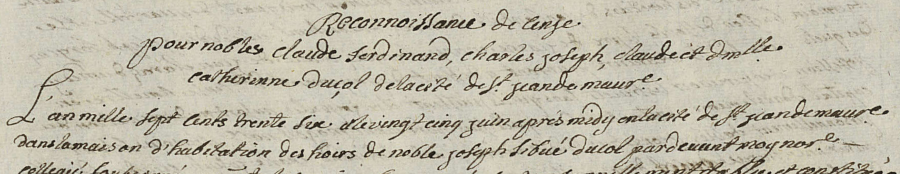 Reconnoissance de Cense
pour nobles claude ferdinand, charles joseph, claude et dmlle
Catherinne ducol de la cité de St jean de maure
L'an mille sept cents trente six et le vingt cinq juin apres midy en la cité de St jean de maure
dans la maison d'habitation des hoirs de noble joseph ducol pardevant moy nore